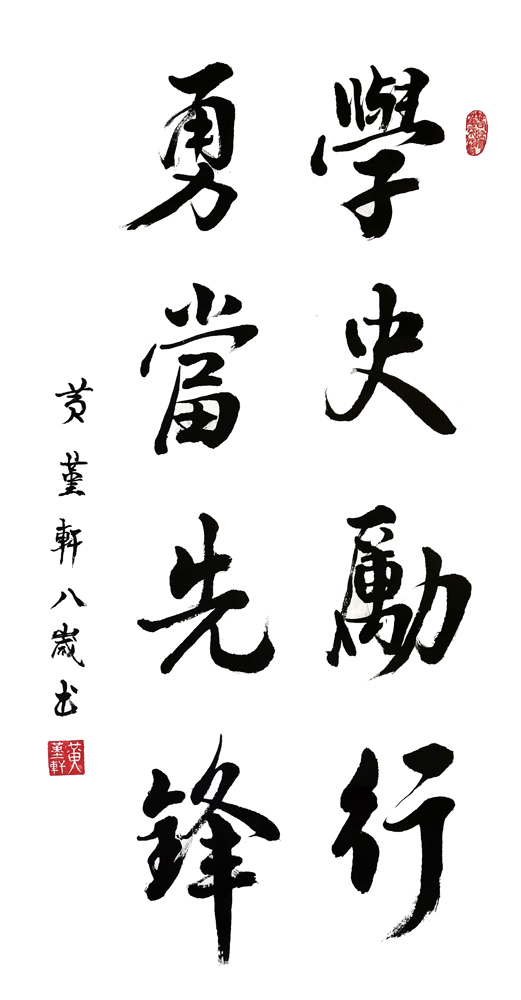 學史勵行
勇當先鋒
黄堇軒八歲书
黄堇軒